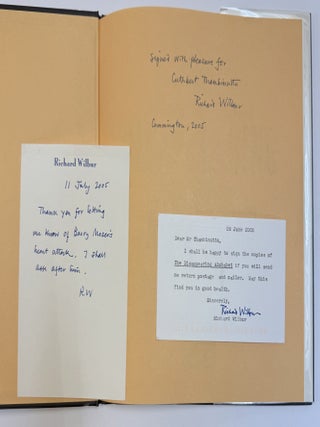 Signed with pleasure for
Cuthbert Thambimuttu
Richard Wilbur
Cummington, 2005
Richard Wilbur
11 July 2005
Thank you for letting
me know of Barry Moser's
heart attack. I shall
ask after him.
R.W
29 June 2005
Dear Mr Thambimuttu,
I shall be happy to sign the copies of
The Disappearing Alphabet if you will send
me return postage and mailer. May this
find you in good health.
Sincerely,
Richard Wilbur
Richard Wilbur